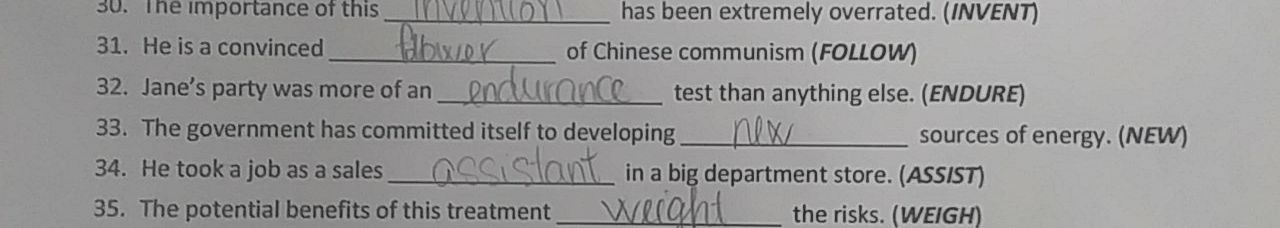 30. The importance of this invention has been extremely overrated. (INVENT)
31. He is a convinced follower of Chinese communism (FOLLOW)
32. Jane's party was more of an endurance test than anything else. (ENDURE)
33. The government has committed itself to developing new sources of energy. (NEW)
34. He took a job as a sales assistant in a big department store. (ASSIST)
35. The potential benefits of this treatment weight the risks. (WEIGH)